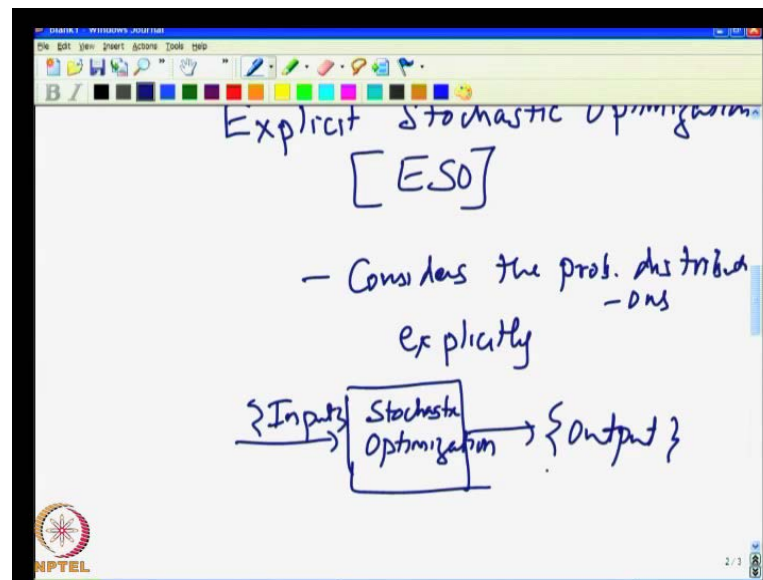 Blank1 - Windows Journal
File Edit View Insert Actions Tools Help
B I
Explicit Stochastic Optimization
[ESO]
- Considers the prob. distributi
-ons
explicitly
{Input} Stochastic Optimization {Output}
2/3
NPTEL